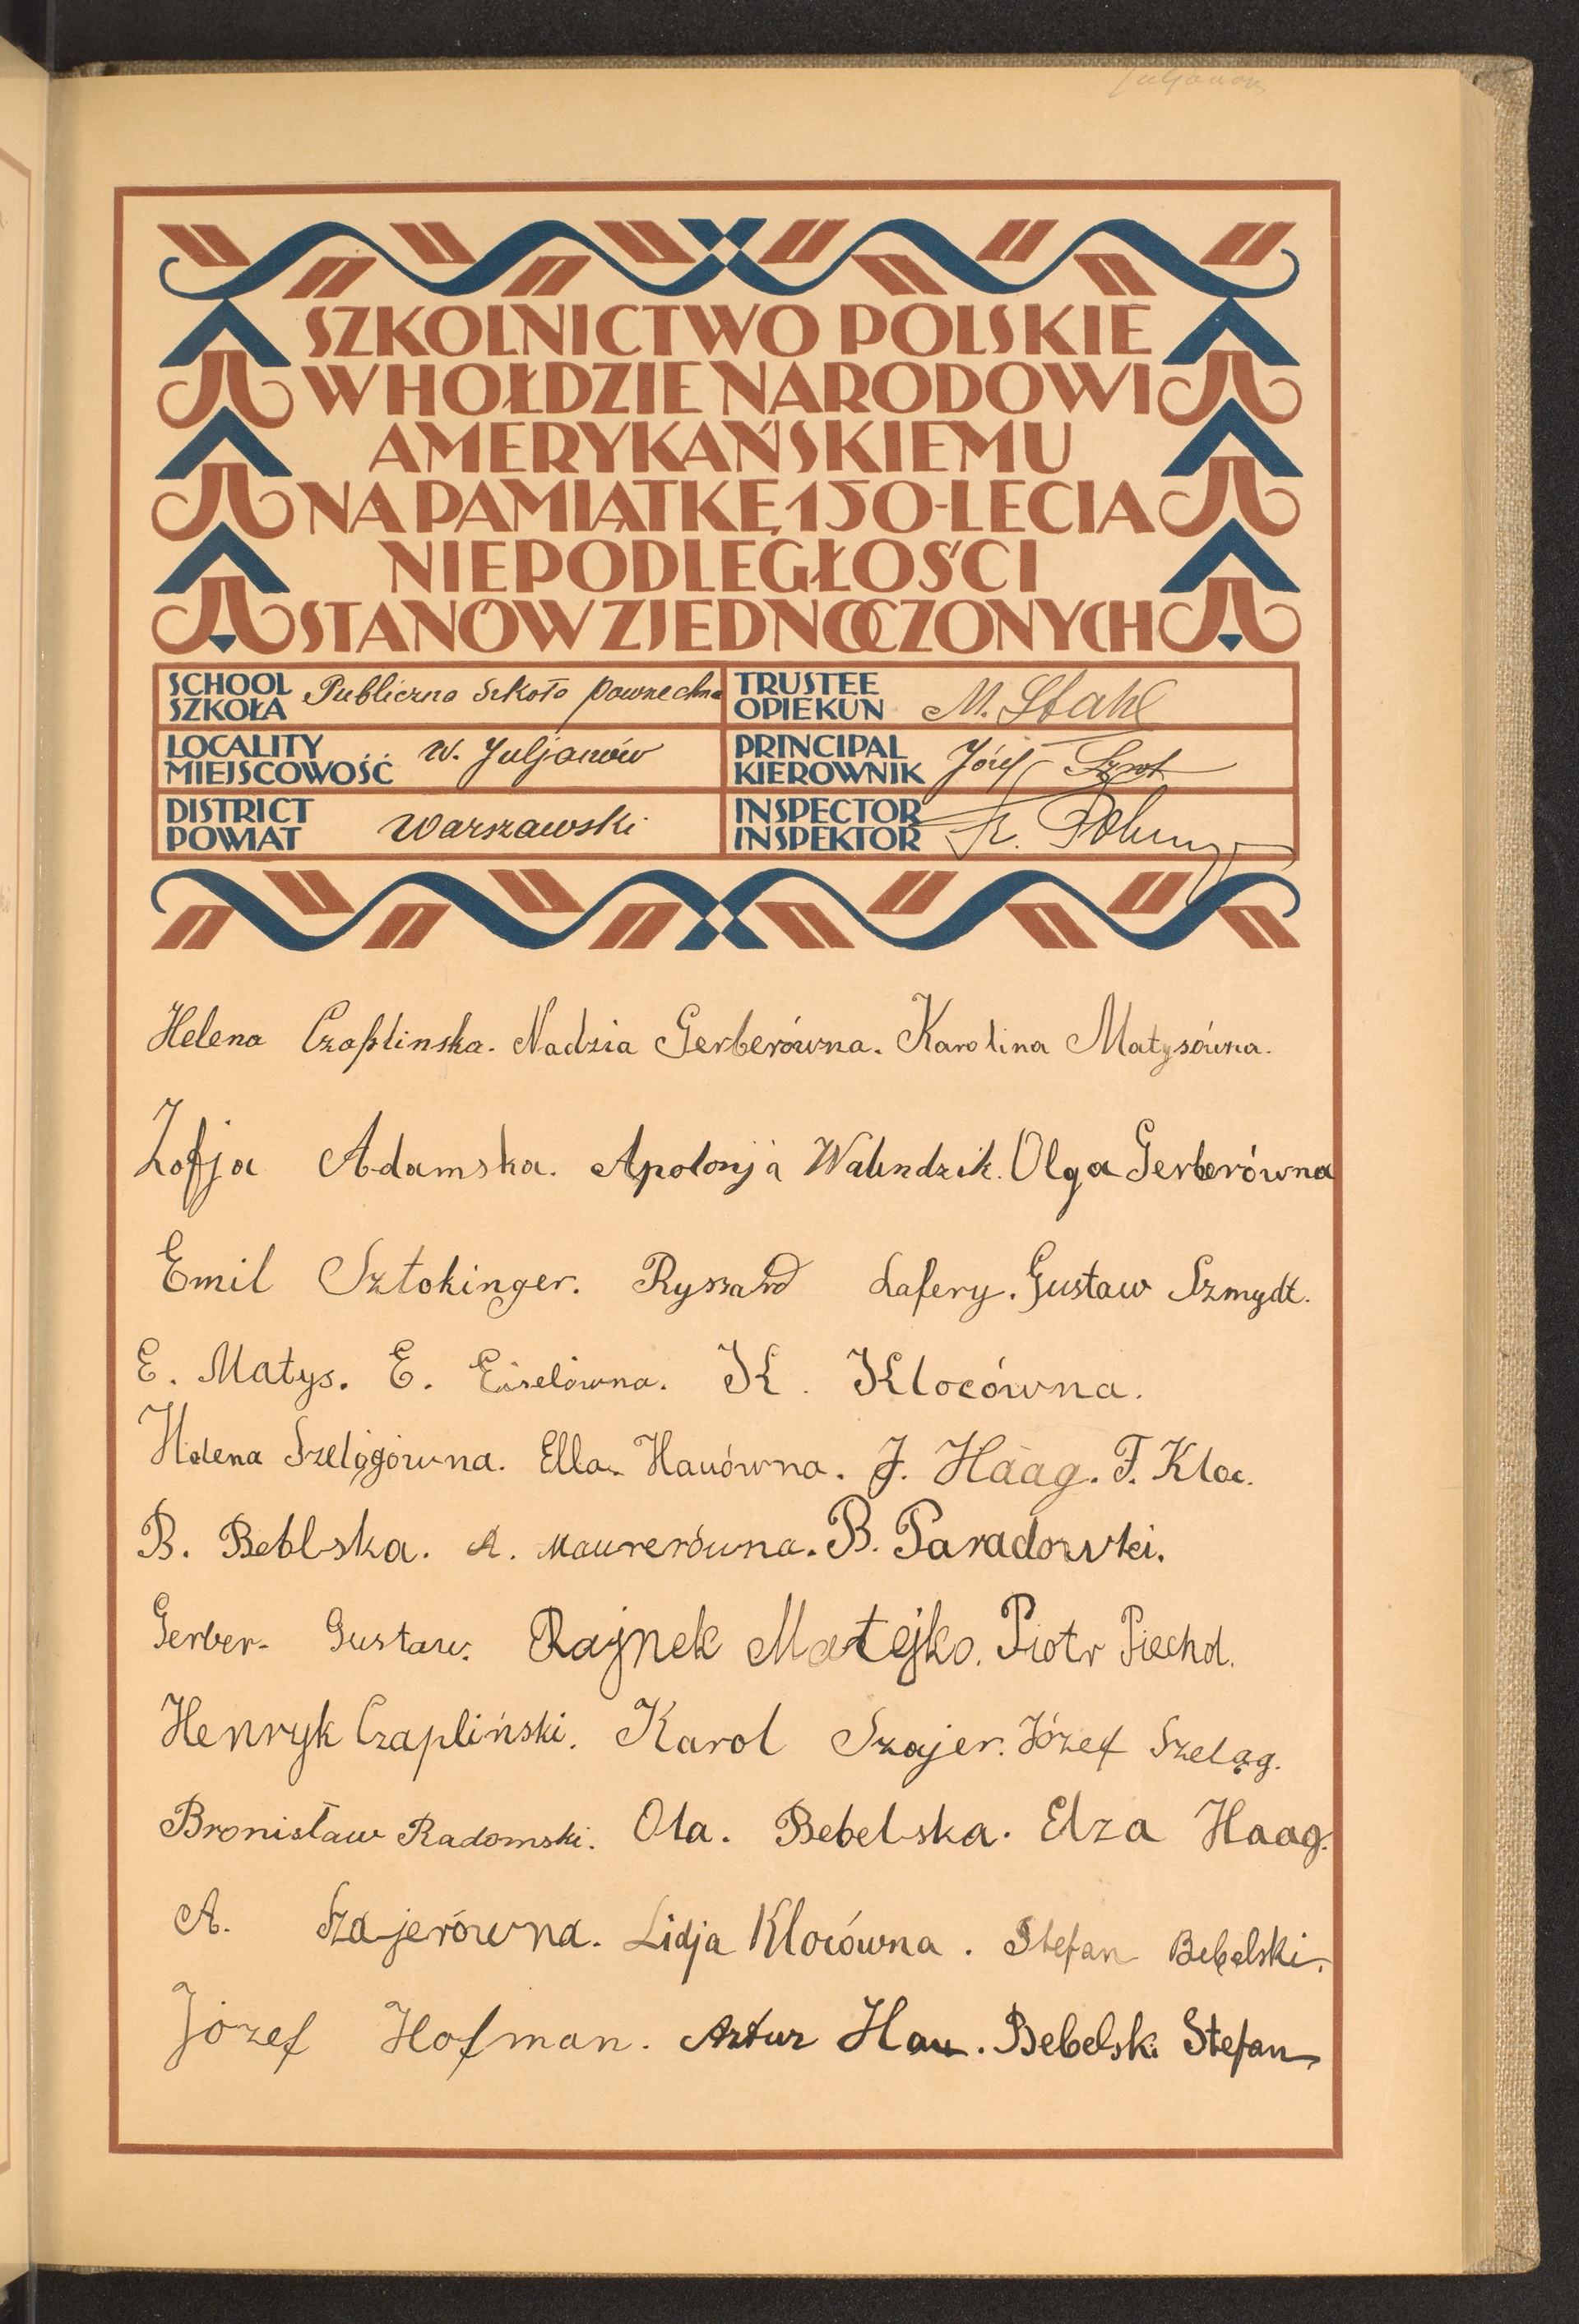 Juljanów
SZKOLNICTWO POLSKIE
W HOŁDZIE NARODOWI
AMERYKAŃSKIEMU
NA PAMIĄTKĘ 150-LECIA
NIEPODLEGŁOŚCI
STANÓW ZJEDNOCZONYCH
SCHOOL SZKOŁA Publiczna Szkoła Powszechna
TRUSTEE OPIEKUN M. Stahl
LOCALITY MIEJSCOWOŚĆ W. Juljanów
PRINCIPAL KIEROWNIK Józef
DISTRICT POWIAT Warszawski
INSPECTOR INSPEKTOR
Helena Czaplinska. Nadzia Gerberówna. Karolina Matysówna.
Zofja Adamska. Apolonja Walendzik. Olga Gerberówna
Emil Sztokinger. Ryszard Lafery. Gustaw Szmydt.
E. Matys. E. Eiselówna. K. Klocówna.
Helena Szelągówna. Ella. Hauówna. J. Haag. F. Kloc.
B. Beblska. A. Maurerówna. B. Paradowski.
Gerber. Gustaw. Rajnek Matejko. Piotr Piechol.
Henryk Czapliński. Karol Szajer. Józef Szeląg.
Bronisław Radomski. Ola. Bebelska. Elza Haag.
A. Szajerówna. Lidja Klocówna. Stefan Bebelski.
Józef Hofman. Artur Hau. Bebelski Stefan